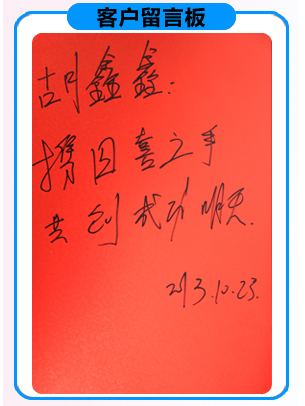 客户留言板
胡鑫鑫:
携因喜之手
共创我们明天.
2013.10.23.